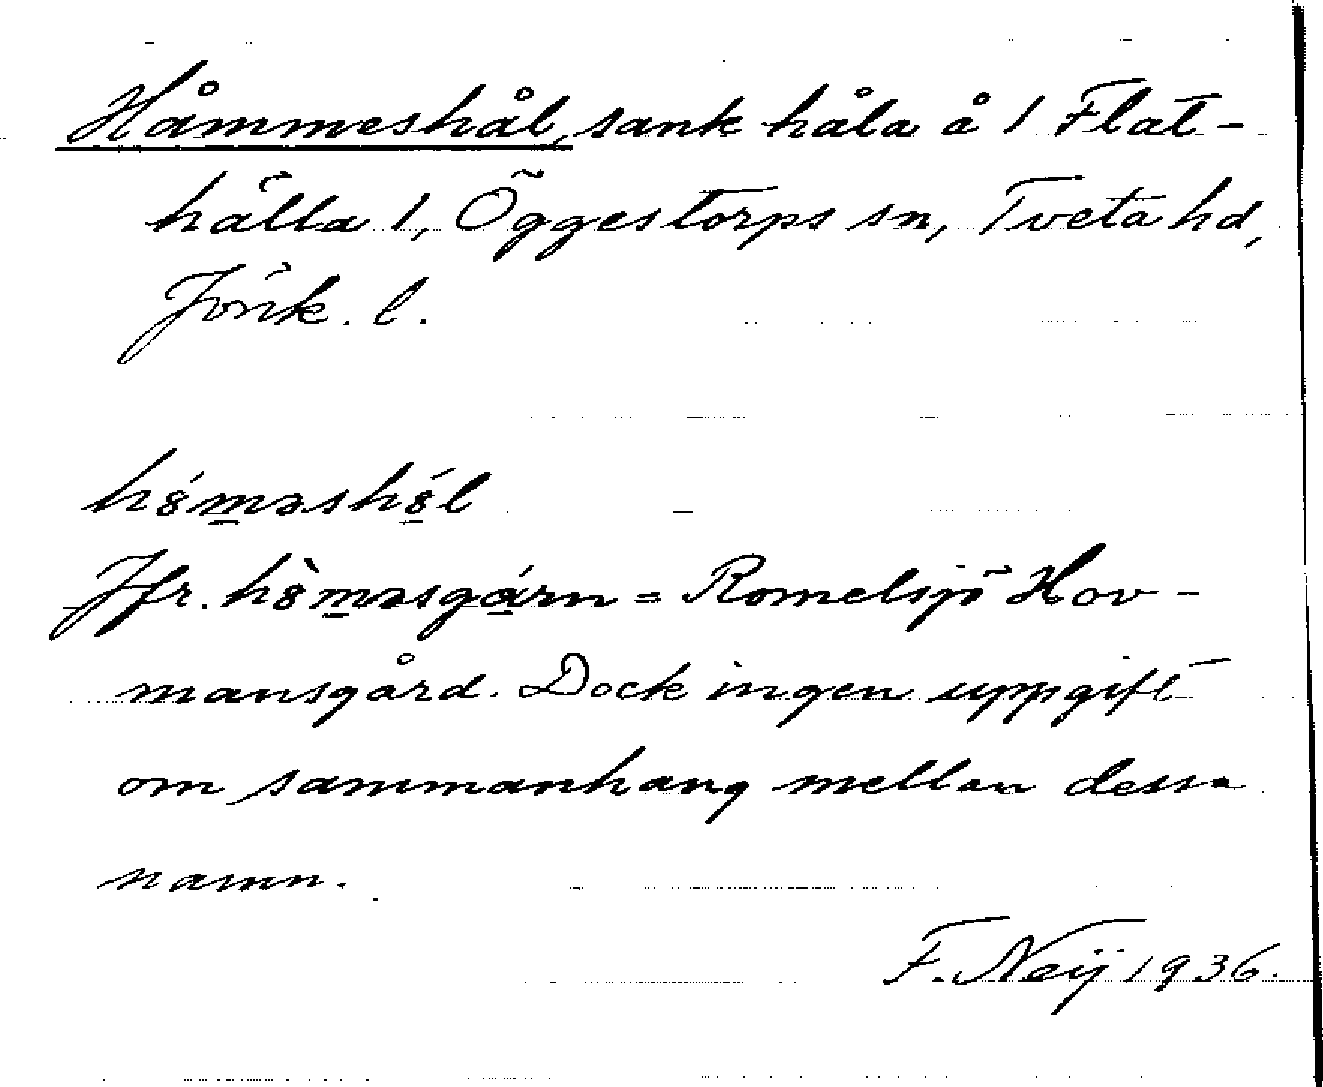 Håmmeshål, sank håla å 1 Flat-
hälla 1, Öggestorps sn, Tveta hd,
Jönk. l.
hȣ́m̲əshȣ̲́l
Jfr. hȣ̀m̲əsgá̲rn = Romelsjö Hov-
mansgård. Dock ingen uppgift
om sammanhang mellan dessa
namn.
F. Neij 1936.